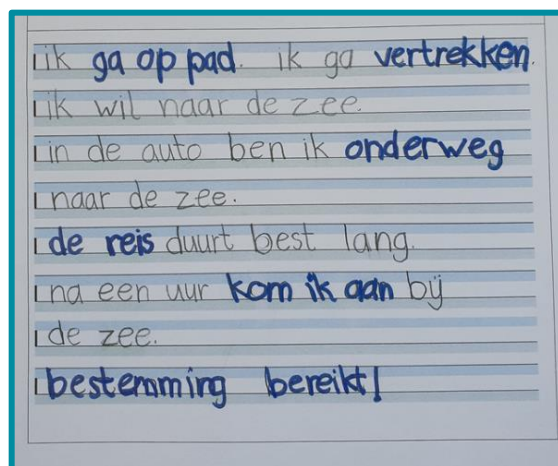 ik ga op pad. ik ga vertrekken.
ik wil naar de zee.
in de auto ben ik onderweg
naar de zee.
de reis duurt best lang.
na een uur kom ik aan bij
de zee.
bestemming bereikt!